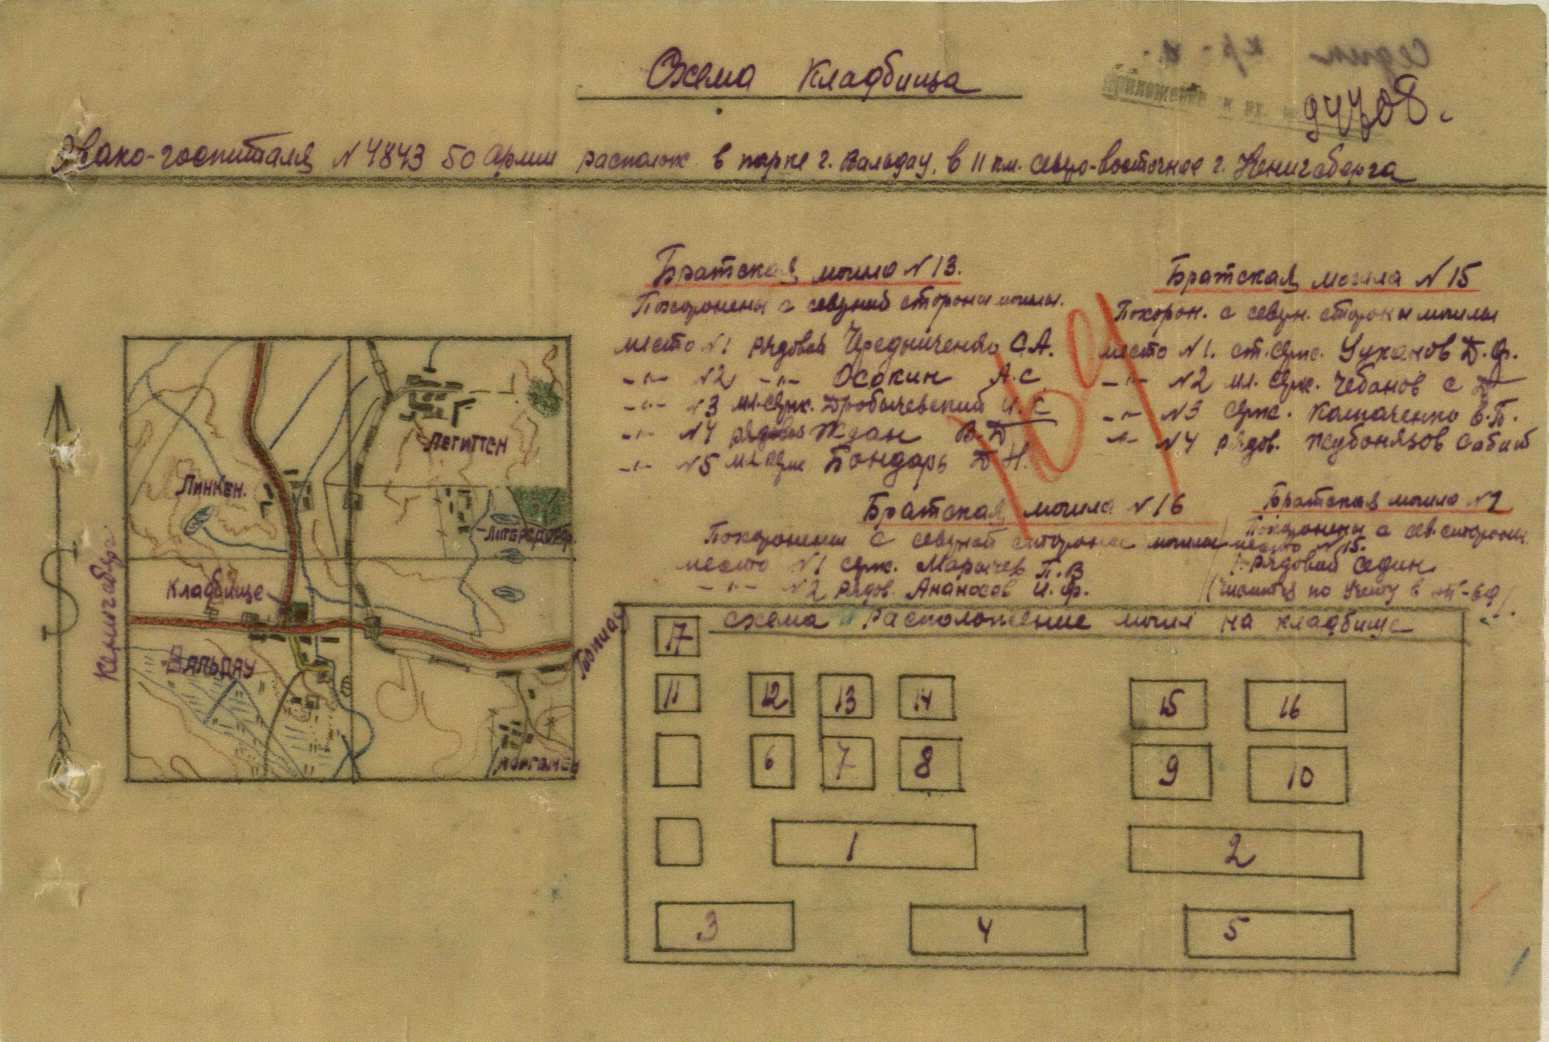 Схема Кладбища
Приложение к вх. №
94708.
Эвако-госпиталя №4843 50 Армии располож в парке г. Вальдау, в 11 км. северо-восточнее г. Кенигсберга
Братская могила №13.
Похоронены с северной стороны могилы.
место №1 рядовой Чередниченко С.А.
-"- №2 -"- Осокин А.С.
-"- №3 мл.серж. Дробычевский И.С
-"- №4 рядовой Ждан В.Д
-"- №5 мл серж Бондарь Д.Н.
Братская могила №15
Похорон. с северн. стороны могилы
место №1. ст.серж. Уханов Д.Ф.
-"- №2 мл. серж. Чебанов С Д
-"- №3 серж. Колпаченко В.П.
-"- №4 рядов. Жубонязов Сабит
Братская могила №16
Похоронены с северной стороны могилы
место №1 серж. Марычев П.В
-"- №2 рядов. Ананосов И.Ф.
Братская могила №2
Похоронены с сев.стороны
место №15.
рядовой Седин
169
Легиттен
Линкен.
Кладбище
Вальдау
Кенигсберг
Тапиау
Схема расположение могил на кладбище
17
11 12 13 14 15 16
6 7 8 9 10
1 2
3 4 5